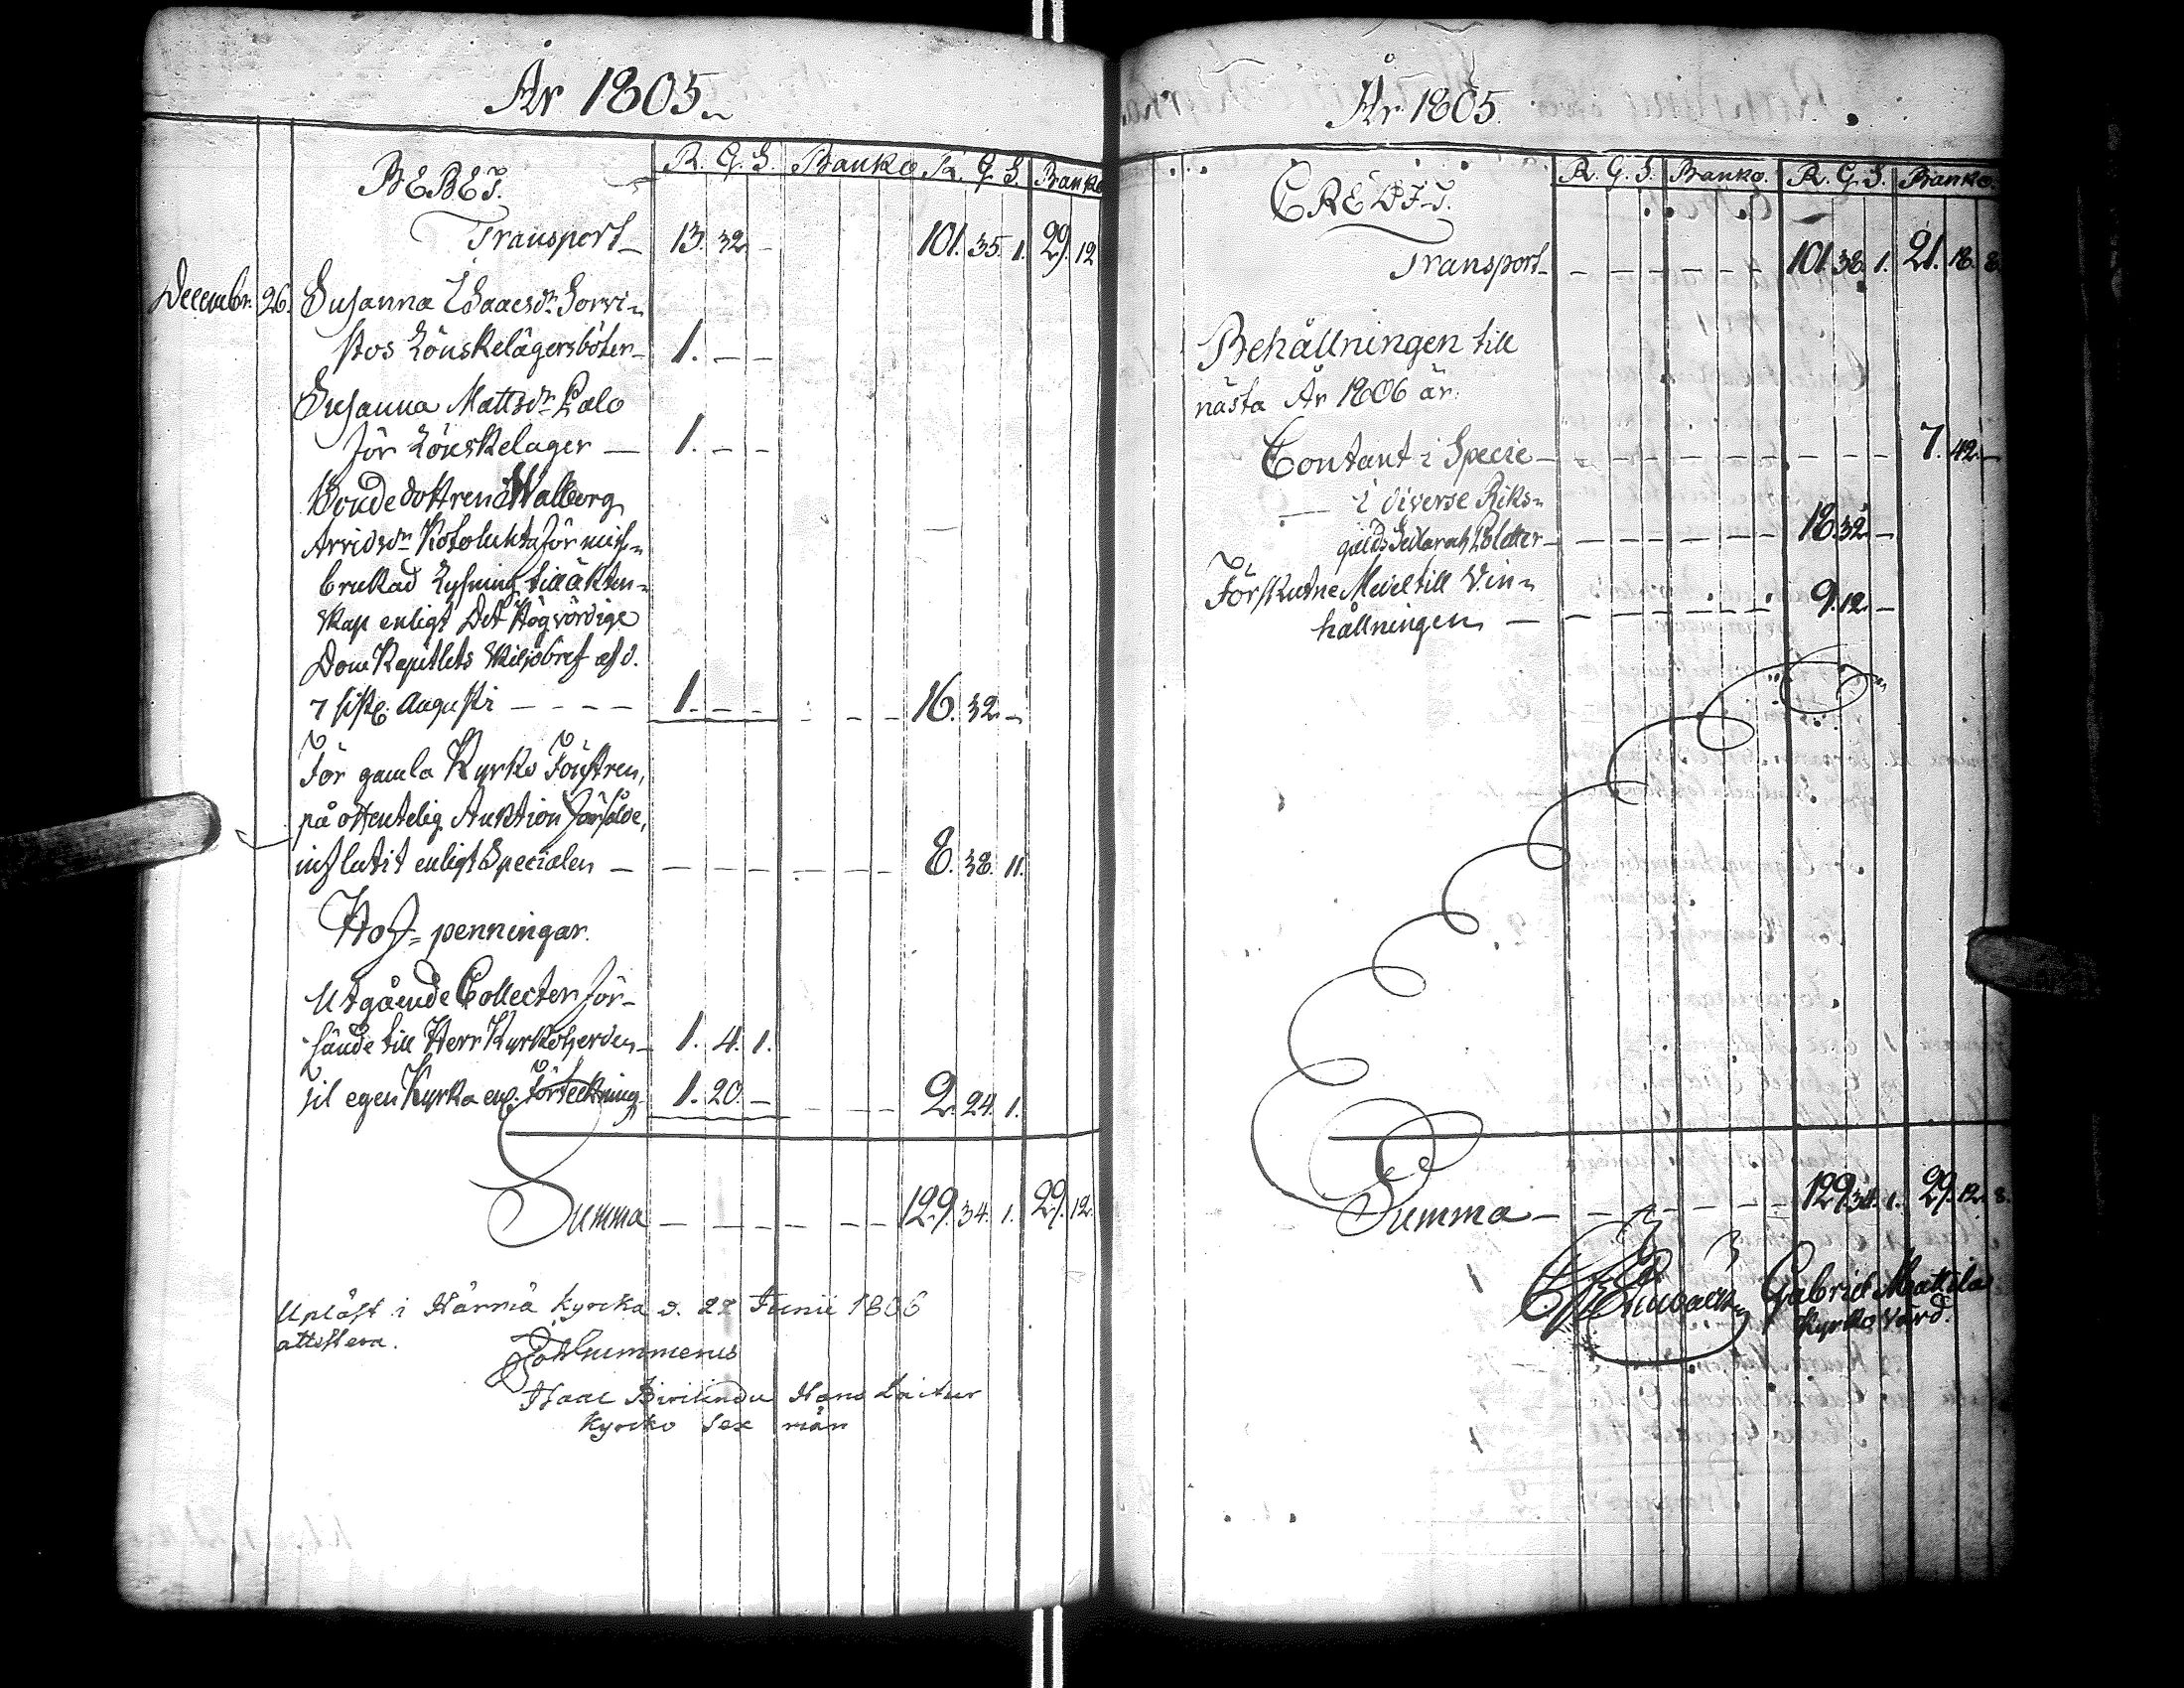 År 1805.
R. G. S. Banko R. G. S. Banko
DEBET.
Transport 13. 32. - 101. 35. 1. 29. 12
Decembr. 26. Susanna Isaacsdr. Sorvi-
kos Lönskelägersböter 1. - -
Susanna Mattsdr. Palo
för Lönskeläger — 1. - -
Bondedottren Walborg
Arvidsdr. Kotoluhta för miss-
brukad Lysning till äkten-
skap enligt Det Högvördige
DomKapitlets Skiljobref af d.
7 sistl. Augusti - - - - 1. - - - - - 16. 32. -
För gamla Kyrko Fönstren,
på offentelig Auktion försålde,
influtit enligt Specialen — - - - - - - - 8. 38. 11.
Hof-penningar.
Utgående Collecter för-
sände till Herr Kyrkoherden 1. 4. 1.
Til egen Kyrka enl. Förteckning 1. 20. - - - - 2. 24. 1.
Summa - - - - - - 129. 34. 1. 29. 12.
Upläst i Härmä kyrcka d. 22 Junii 1806
attestera.
Hans
Kyrcko Sex män
År 1805.
R. G. S. Banko. R. G. S. Banko.
CREDIT.
Transport - - - - - - 101. 38. 1. 21. 18. 8
Behållningen till
nästa År 1806 är:
Contant i Specie - - - - - - - - - 7. 42. -
— i diverse Riks-
gälds Sedlar och Poletter - - - - - - 18. 32. -
Förskutne Medel till Vin-
hållningen — - - - - - - 9. 12. -
Summa - - - - - - 129. 34. 1. 29. 12. 8.
Gabriel Mattila
Kyrko Värd.